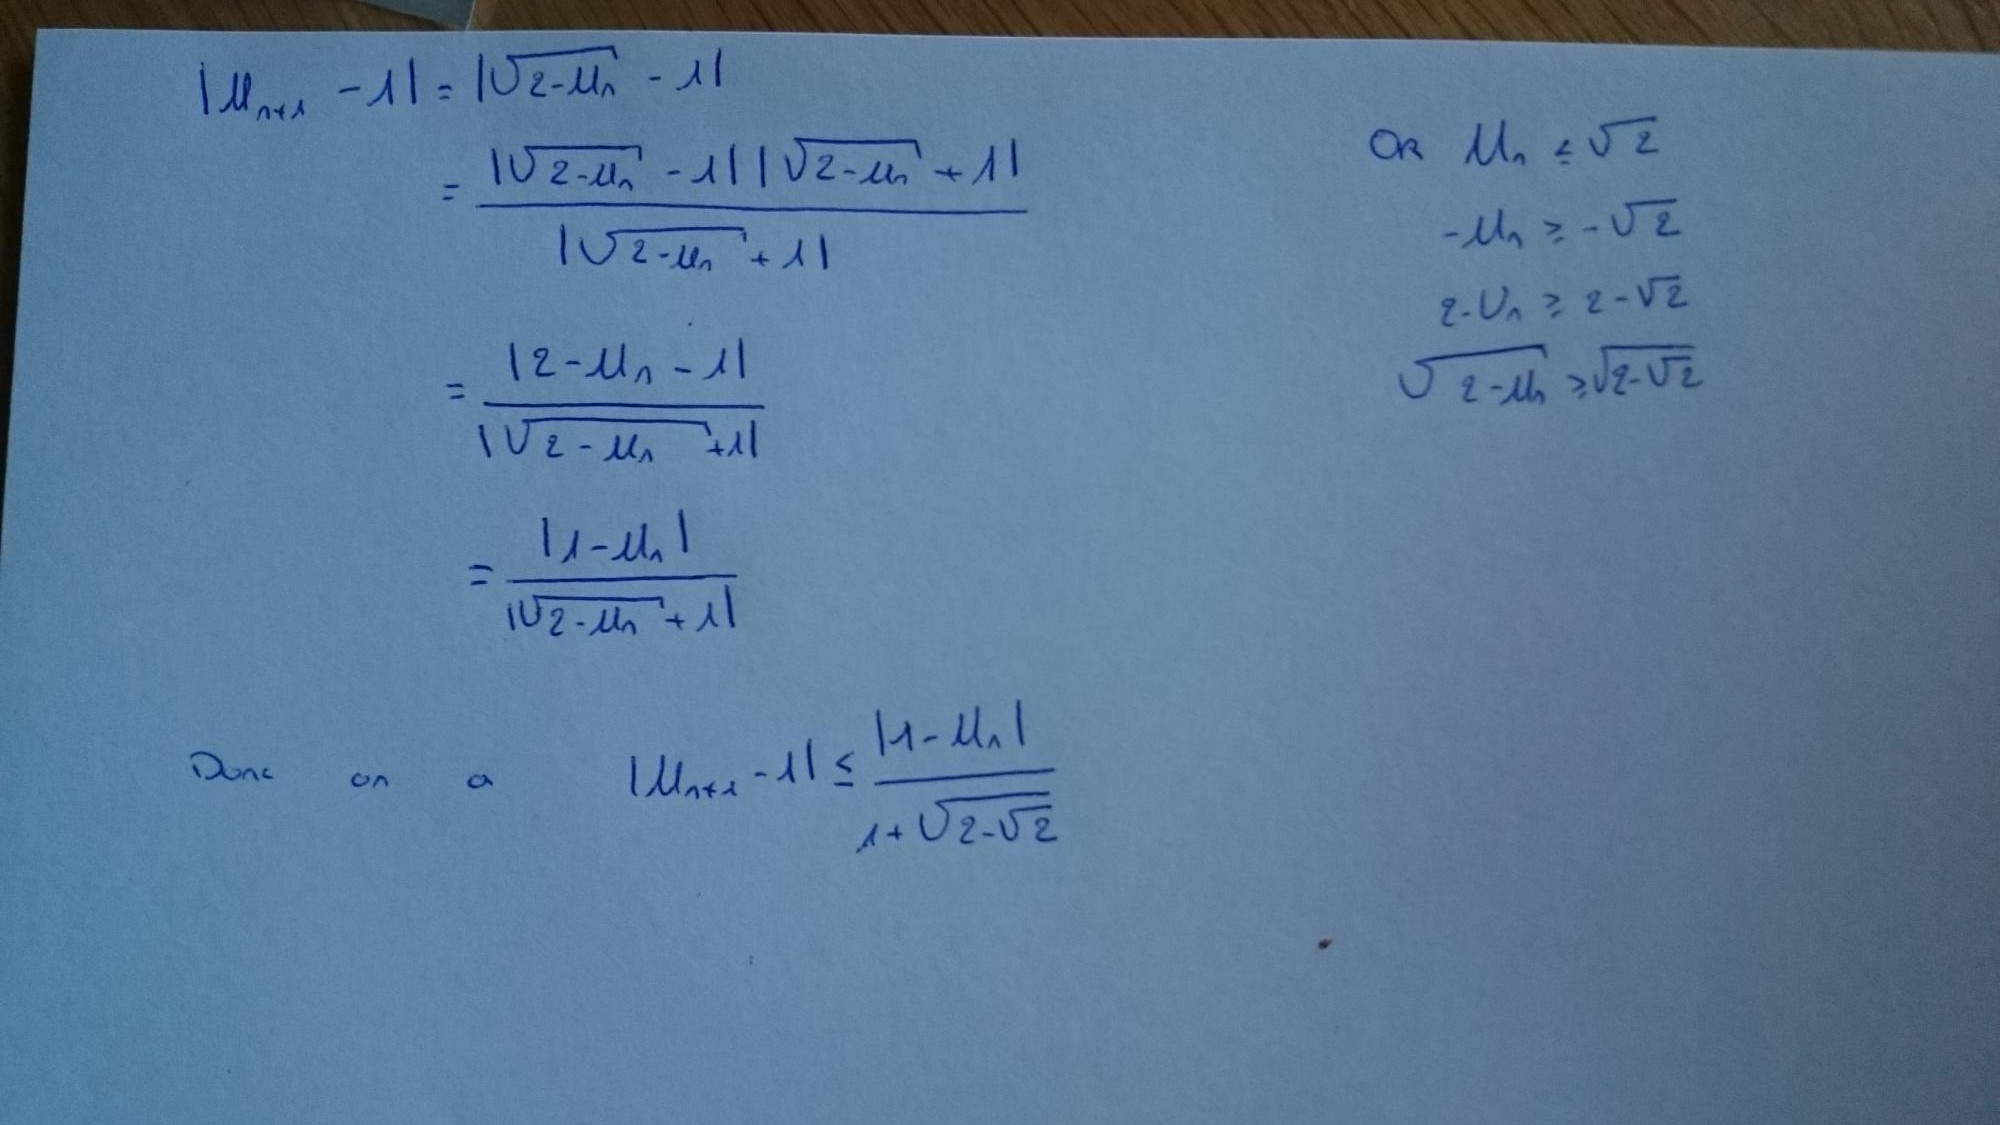 |u_{n+1} - 1| = |√(2-u_n) - 1|
= \frac{|√(2-u_n) - 1| |√(2-u_n) + 1|}{|√(2-u_n) + 1|}
= \frac{|2-u_n - 1|}{|√(2-u_n) + 1|}
= \frac{|1-u_n|}{|√(2-u_n) + 1|}
OR u_n ≤ √2
-u_n ≥ -√2
2-U_n ≥ 2-√2
√(2-u_n) ≥ √(2-√2)
Donc on a |u_{n+1} - 1| ≤ \frac{|1-u_n|}{1+√(2-√2)}